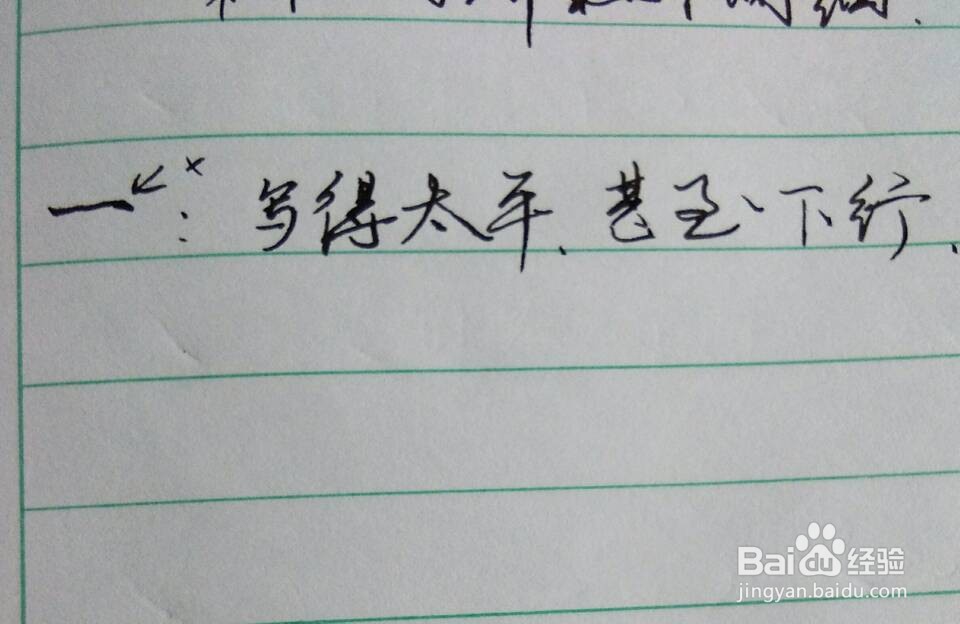 一 ↙×：写得太平、甚至下行、
Bai du 经验
jingyan.baidu.com